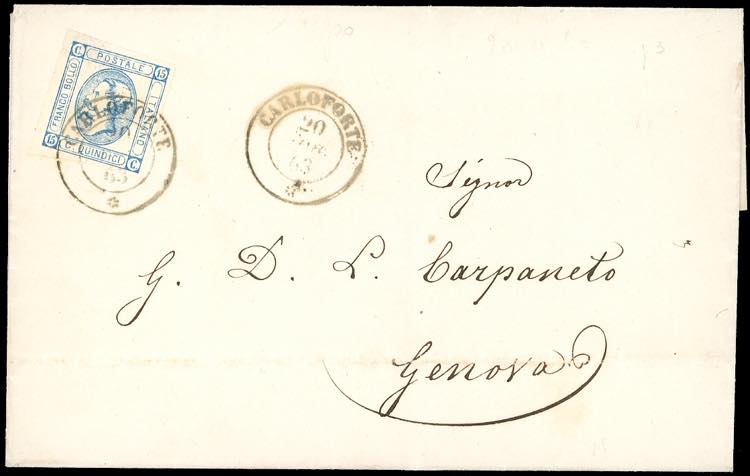 FRANCO BOLLO
POSTALE
ITALIANO
C. QUINDICI
C.
15
15
C.
CARLOFORTE
CARLOFORTE
20
63
Signor
G. D. L. Carpaneto
Genova